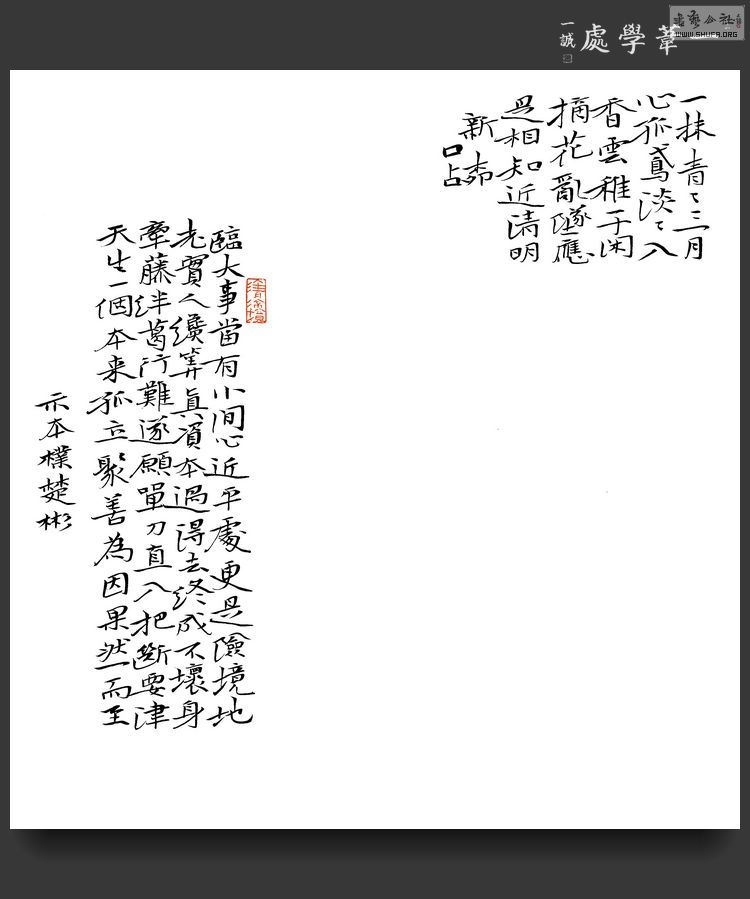 一葦學處
一誠
書藝公社
WWW.SHUFA.ORG
一抹青〻三月
心孤鳶淡〻入
香雲稚子閑
摘花亂墜應
是相知近清明
新
口占
臨大事當有小間心近平處更是險境地
老實人纔算真資本過得去終成不壞身
牽藤絆葛行難遂願單刀直入把斷要津
天生一個本来孤立聚善為因果然一而至
示本樸楚彬